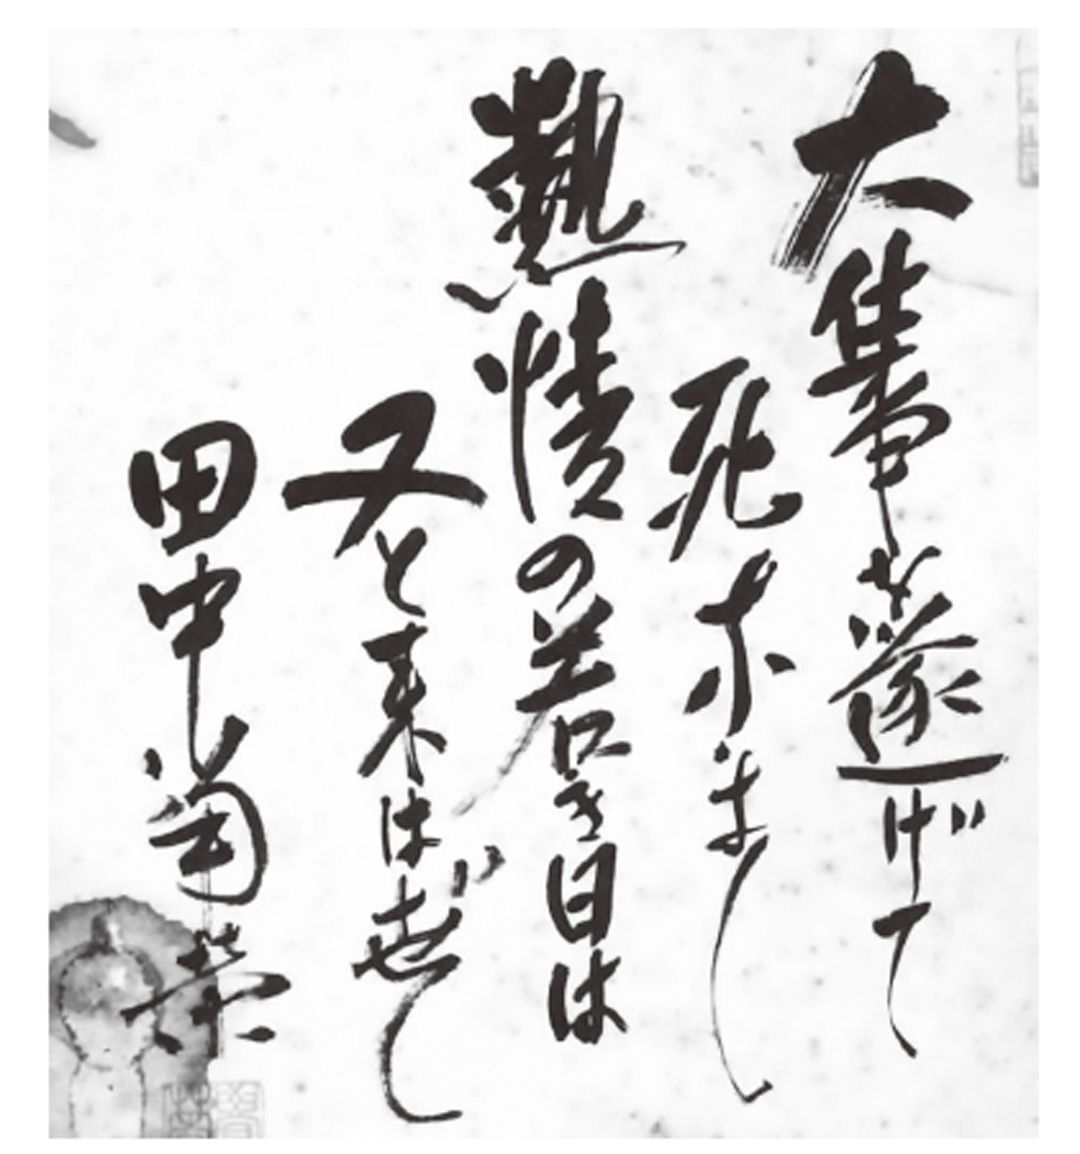 大仕事を遂げて
死なまし
熱情の若き日は
又と来はせじ
田中